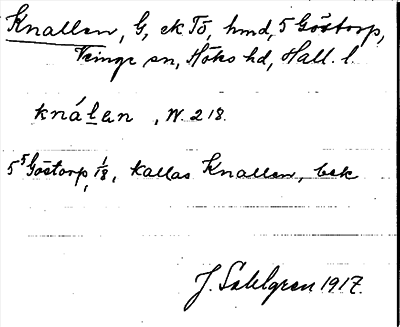 Knallen, G, ek Tö, hmd, 5 Göstorp,
Veinge sn, Höks hd, Hall. l.
knálan, N. 218.
5⁵ Göstorp, 1/8, kallas Knallen, bek
J. Sahlgren 1917.